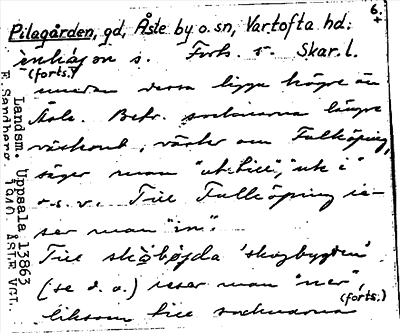 6.
+
Pilagården, gd, Åsle by o. sn, Vartofta hd.
s. Forts. v. Skar. l.
(forts.)
medan dessa ligga högre än
Åsle. Betr. socknarna längre
västerut, väster om Falköping,
säger man "ut till", "ut i"
o.s.v. Till Falköping re-
ser man "in".
Till skọ̈bö̀jda 'skogbygden'
(se d. o.) reser man "ner"
liksom till socknarna
(forts.)
Landsm. Uppsala 13863
E. Sandberg. 1940. ÅSLE VGL.